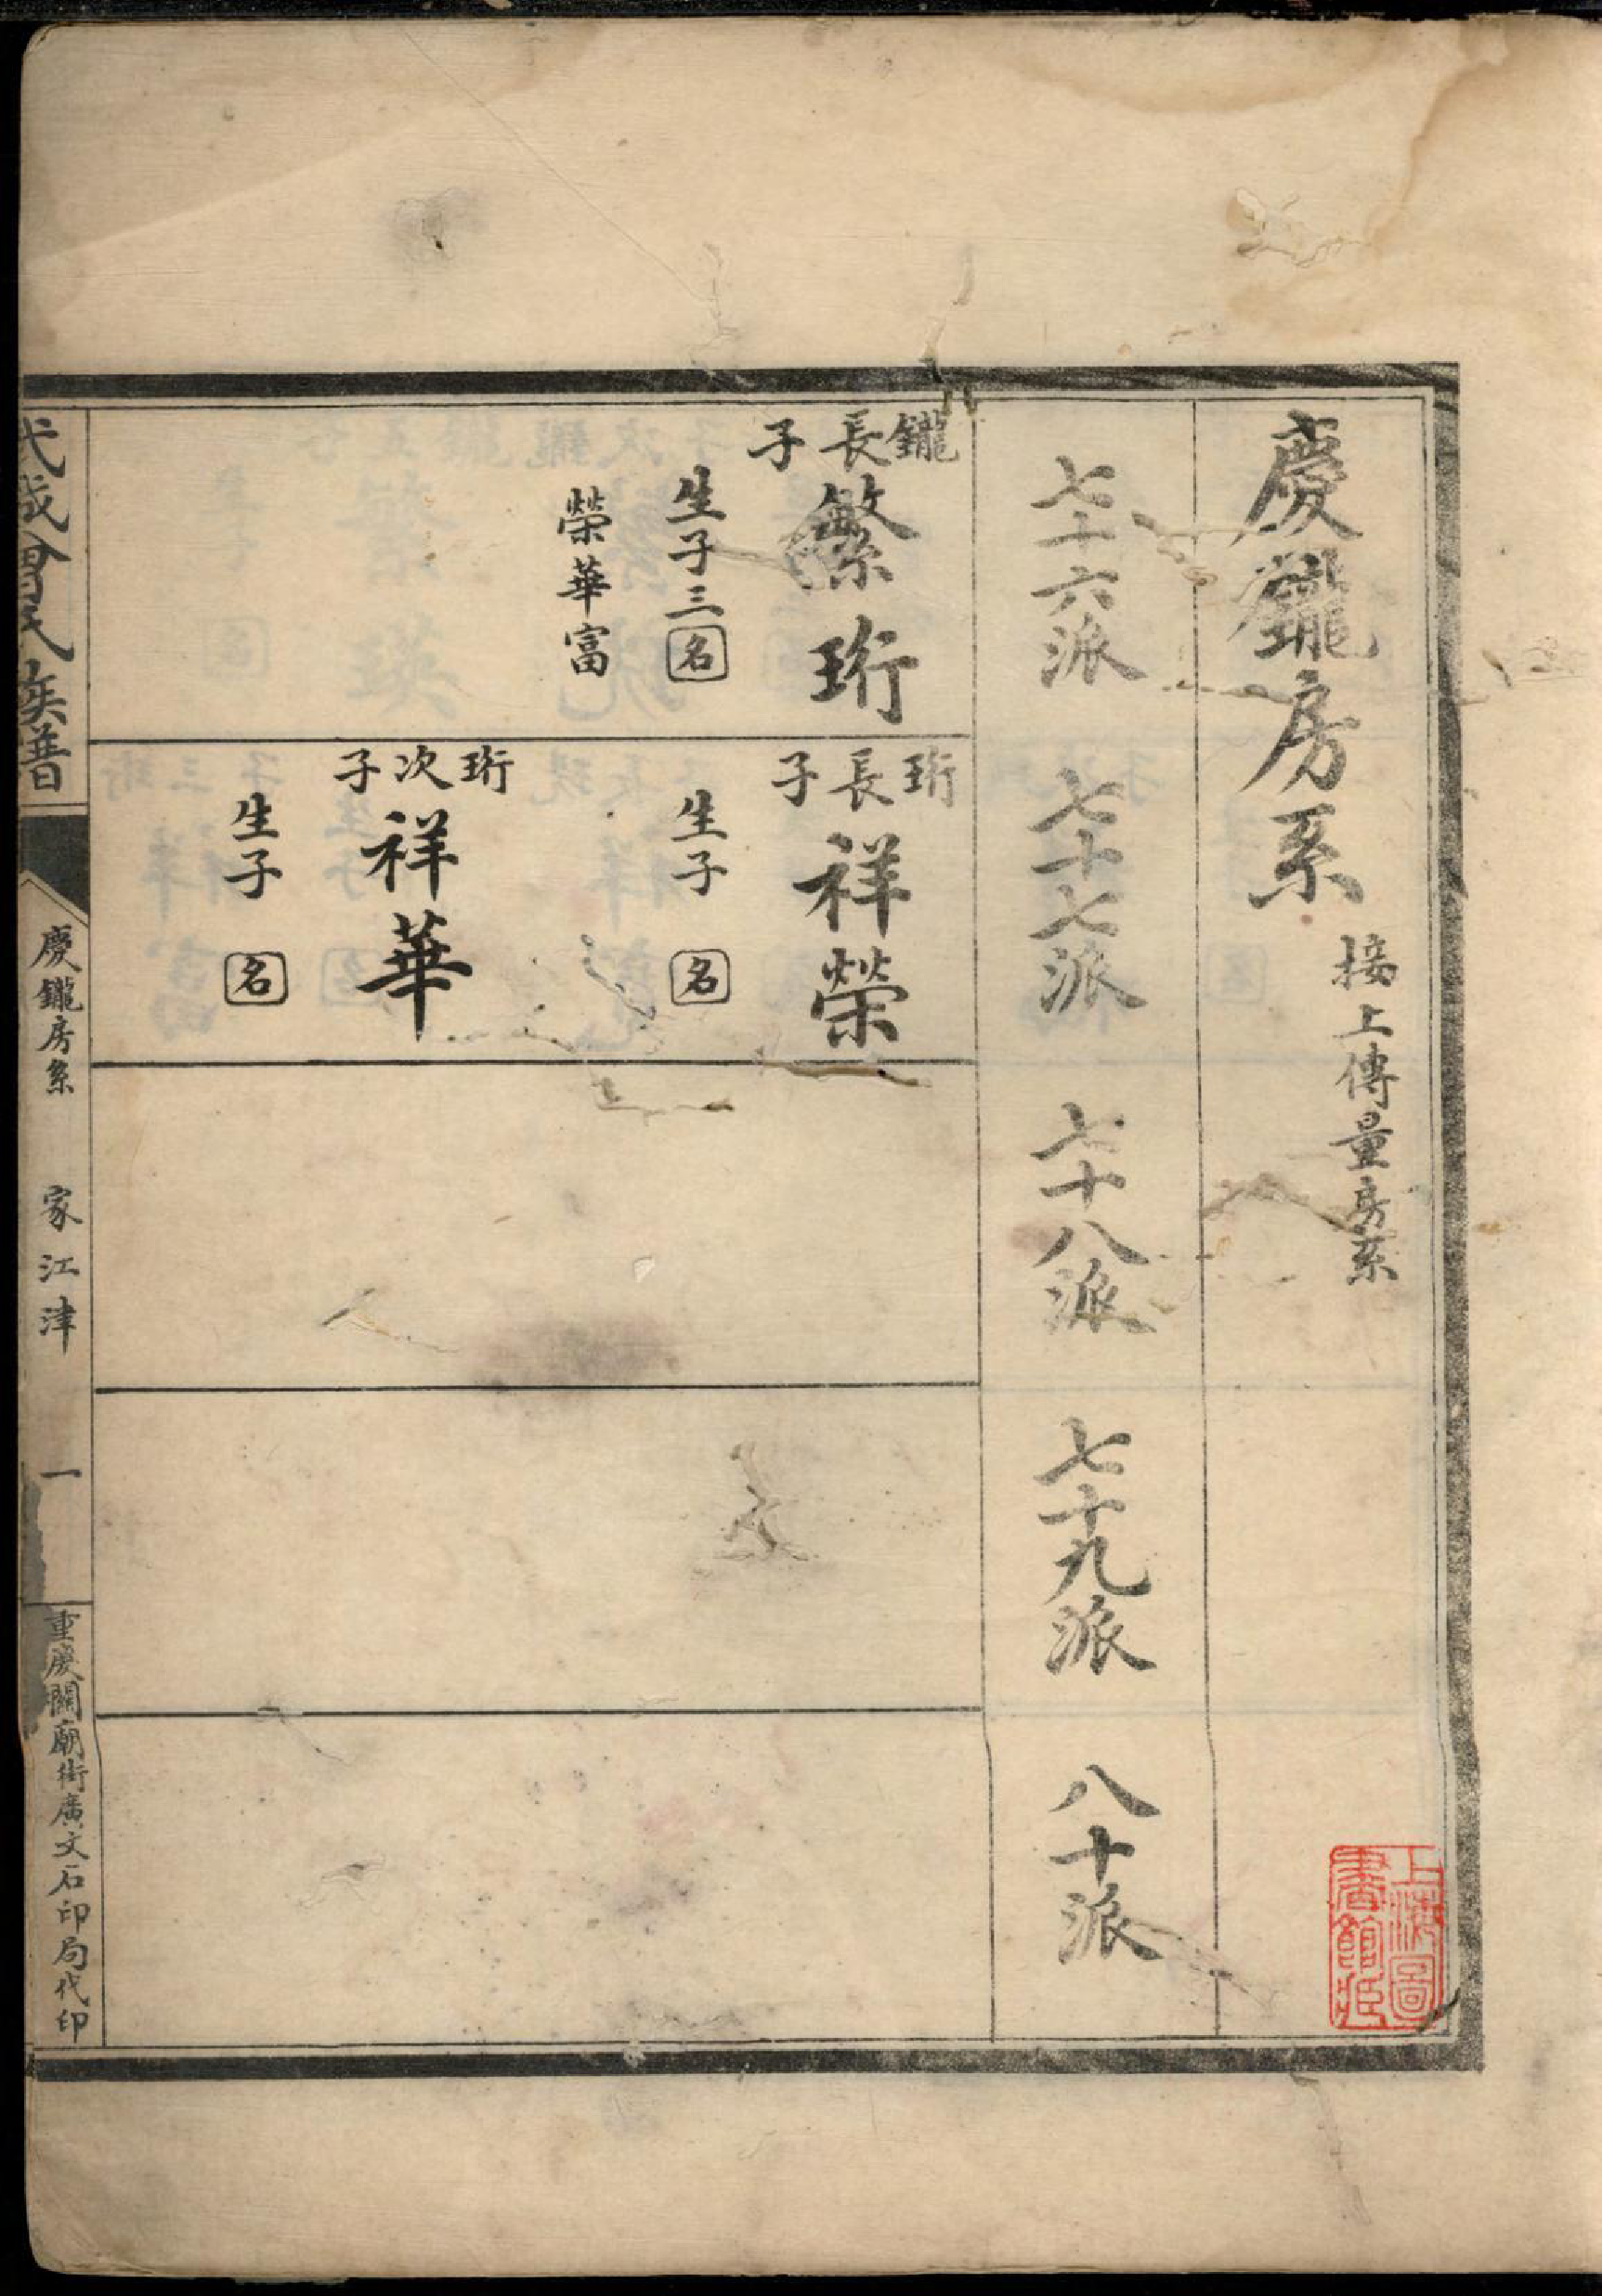 慶鑨房系
接上傳量房系
七十六派
七十七派
七十八派
七十九派
八十派
鑨長子
繁珩
生子三名
榮華富
珩長子
祥榮
生子 名
珩次子
祥華
生子 名
氏族譜
慶鑨房系
家江津
一
重慶關廟街廣文石印局代印
上海圖書館藏